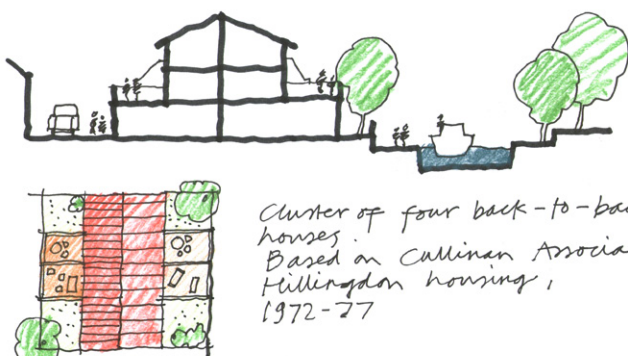 Cluster of four back-to-bac
houses.
Based on Cullinan Associa
Hillingdon housing,
1972-77